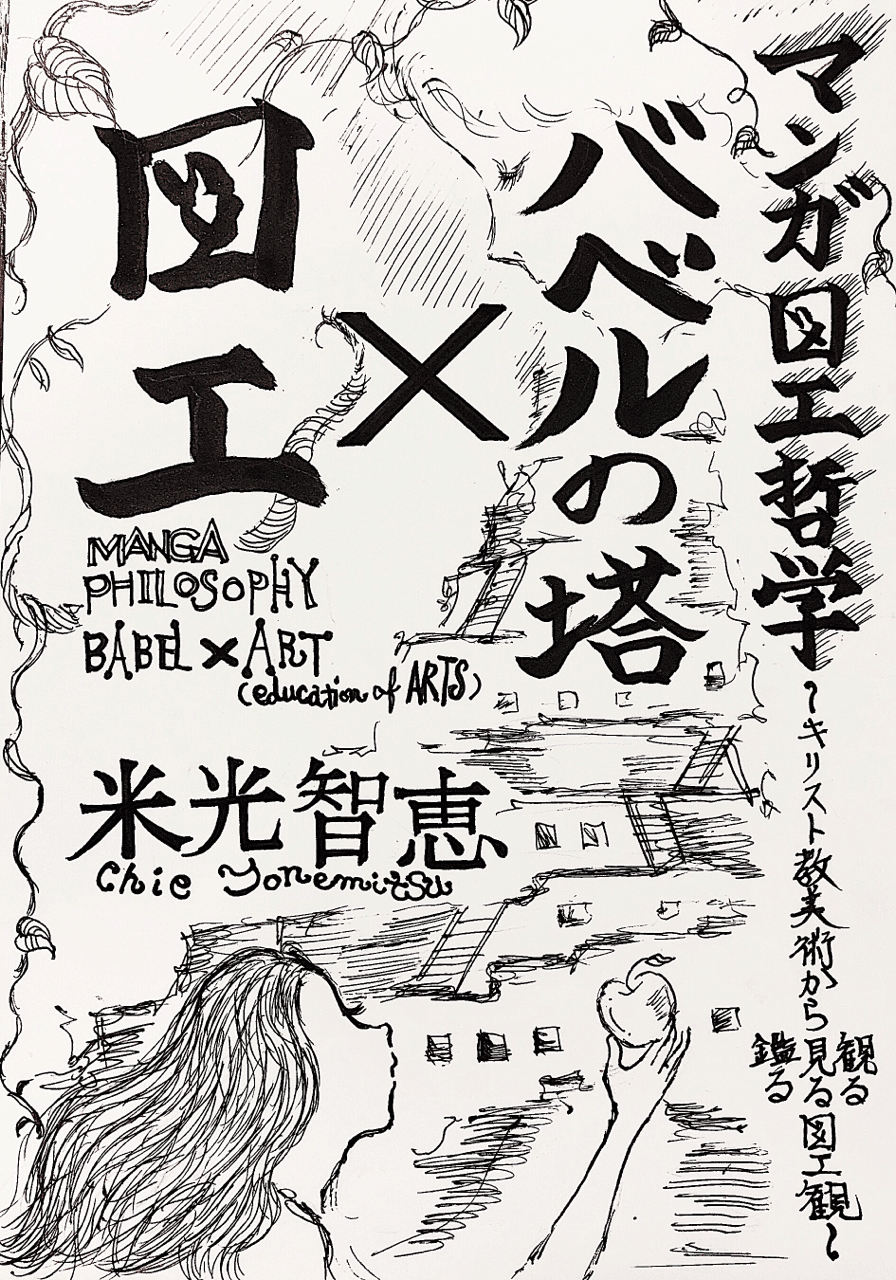 マンガ図工哲学
~キリスト教美術から見る図工観~
観る
鑑る
バベルの塔
×
図工
MANGA
PHILOSOPHY
BABEL × ART
(education of ARTS)
米光智恵
Chie Yonemitsu